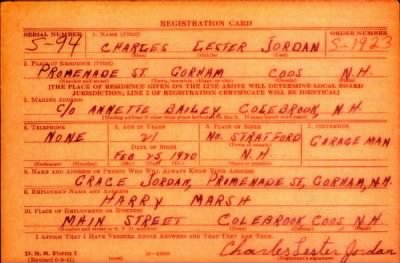 REGISTRATION CARD
SERIAL NUMBER 1. NAME (Print) ORDER NUMBER
S-94 CHARLES LESTER JORDAN S-1923
(First) (Middle) (Last)
2. PLACE OF RESIDENCE (Print)
PROMENADE ST. GORHAM COOS N.H.
[THE PLACE OF RESIDENCE GIVEN ON THE LINE ABOVE WILL DETERMINE LOCAL BOARD
JURISDICTION; LINE 2 OF REGISTRATION CERTIFICATE WILL BE IDENTICAL]
3. MAILING ADDRESS
C/O ANNETTE BAILEY COLEBROOK, N.H.
4. TELEPHONE 5. AGE IN YEARS 6. PLACE OF BIRTH 7. OCCUPATION
NONE 21 NO. STRATFORD GARAGE MAN
DATE OF BIRTH
FEB 25, 1920 N.H.
8. NAME AND ADDRESS OF PERSON WHO WILL ALWAYS KNOW YOUR ADDRESS
GRACE JORDAN, PROMENADE ST, GORHAM, N.H.
9. EMPLOYER'S NAME AND ADDRESS
HARRY MARSH
10. PLACE OF EMPLOYMENT OR BUSINESS
MAIN STREET COLEBROOK COOS N.H.
I AFFIRM THAT I HAVE VERIFIED ABOVE ANSWERS AND THAT THEY ARE TRUE.
D. S. S. FORM 1
Charles Lester Jordan